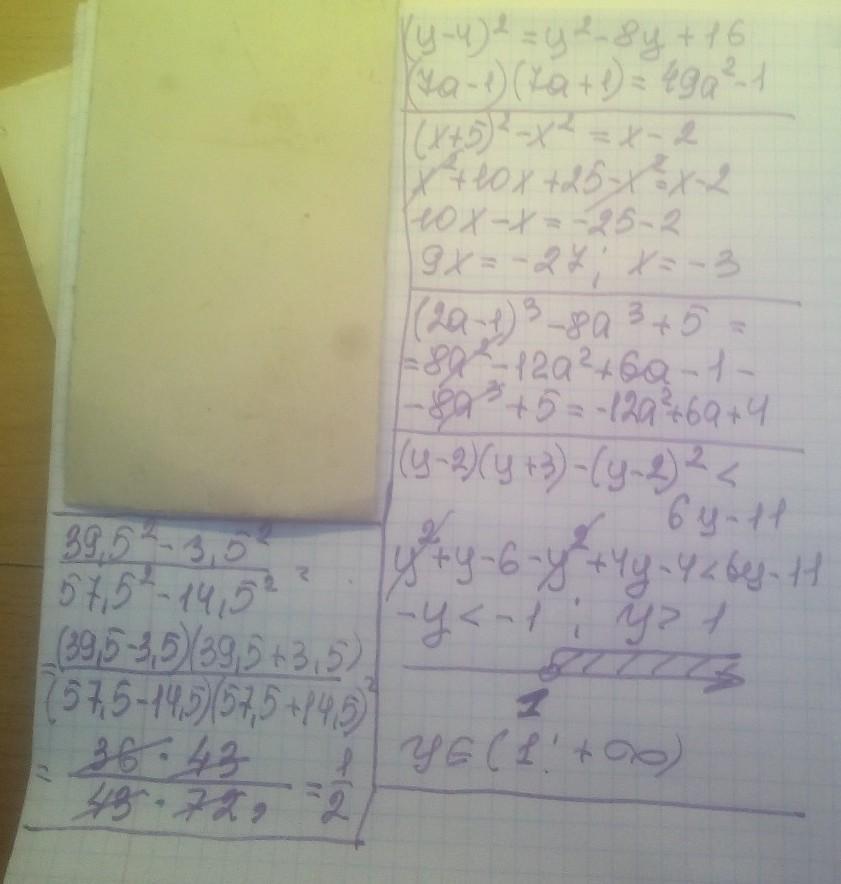 (y-4)² = y² - 8y + 16
(7a-1)(7a+1) = 49a² - 1
(x+5)² - x² = x - 2
x² + 10x + 25 - x² = x - 2
10x - x = -25 - 2
9x = -27; x = -3
(2a-1)³ - 8a³ + 5 =
= 8a² - 12a² + 6a - 1 -
- 8a³ + 5 = -12a² + 6a + 4
(y-2)(y+3) - (y-2)² <
6y - 11
y² + y - 6 - y² + 4y - 4 < 6y - 11
-y < -1 ; y > 1
1
y ∈ (1; +∞)
39,5² - 3,5²
57,5² - 14,5² =
= (39,5-3,5)(39,5+3,5)
(57,5-14,5)(57,5+14,5) =
= 36 · 43
43 · 72 2 = 1/2